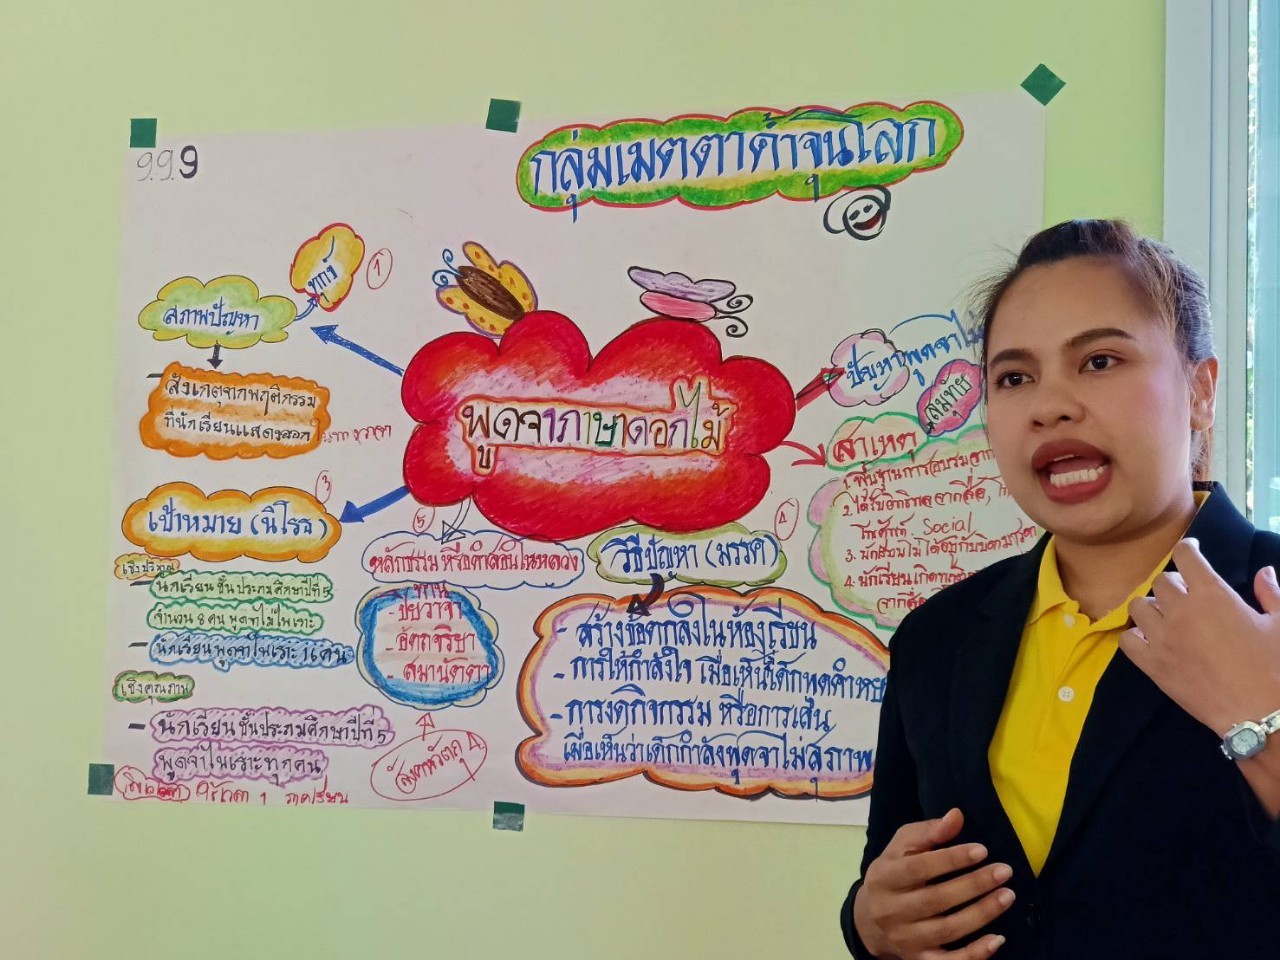 9.9.9
กลุ่มเมตตาค้ำจุนโลก
ทุกข์
1
สภาพปัญหา
สังเกตุจากพฤติกรรม
ที่นักเรียนแสดงออก
พูดจาภาษาดอกไม้
ปัญหาพูดจาไม่
สมุทัย
สาเหตุ
1. พื้นฐานการอบรมจาก
2. ได้รับอิทธิพลจากสื่อ,
โทรศัพท์ Social
3. นักเรียนไม่ได้อยู่กับบิดามารดา
4. นักเรียนเกิด
จากสื่อ
3
เป้าหมาย (นิโรธ)
เชิงปริมาณ
- นักเรียนชั้นประถมศึกษาปีที่ 5
จำนวน 8 คน พูดจาไม่ไพเราะ
- นักเรียนพูดจาไพเราะ 16 คน
เชิงคุณภาพ
- นักเรียนชั้นประถมศึกษาปีที่ 5
พูดจาไพเราะทุกคน
1 ภาคเรียน
5
หลักธรรม หรือคำสอนในหลวง
ทาน
- ปิยวาจา
- อัตถจริยา
- สมานัตตา
สังคหวัตถุ 4
4
วิธีปัญหา (มรรค)
- สร้างข้อตกลงในห้องเรียน
- การให้กำลังใจ เมื่อเห็นเด็กพูดคำหย
- การงดกิจกรรม หรือการเล่น
เมื่อเห็นว่าเด็กกำลังพูดจาไม่สุภาพ